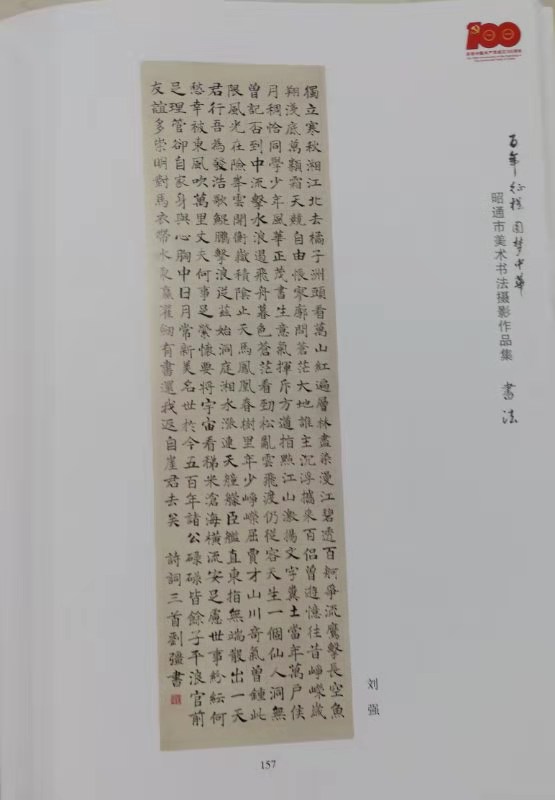 100
百年征程 圆梦中华
昭通市美术书法摄影作品集 书法
獨立寒秋湘江北去橘子洲頭看萬山紅遍層林盡染漫江碧透百舸爭流鷹擊長空魚
翔淺底萬類霜天競自由悵寥廓問蒼茫大地誰主沉浮攜來百侶曾遊憶往昔崢嶸歲
月稠恰同學少年風華正茂書生意氣揮斥方遒指點江山激揚文字糞土當年萬戶侯
曾記否到中流擊水浪遏飛舟暮色蒼茫看勁松亂雲飛渡仍從容天生一個仙人洞無
限風光在險峯雲開衡嶽積陰止天馬鳳凰春樹里年少崢嶸屈賈才山川奇氣曾鍾此
君行吾為發浩歌鯤鵬擊浪從茲始洞庭湘水漲連天艟艨巨艦直東指無端散出一天
愁幸被東風吹萬里丈夫何事足縈懷要將宇宙看稊米滄海橫流安足慮世事紛紜何
足理管卻自家身與心胸中日月常新美名世於今五百年諸公碌碌皆餘子平浪宮前
友誼多崇明對馬衣帶水東瀛濯劍有書還我返自崖君去矣 詩詞三首劉強書
刘强
157